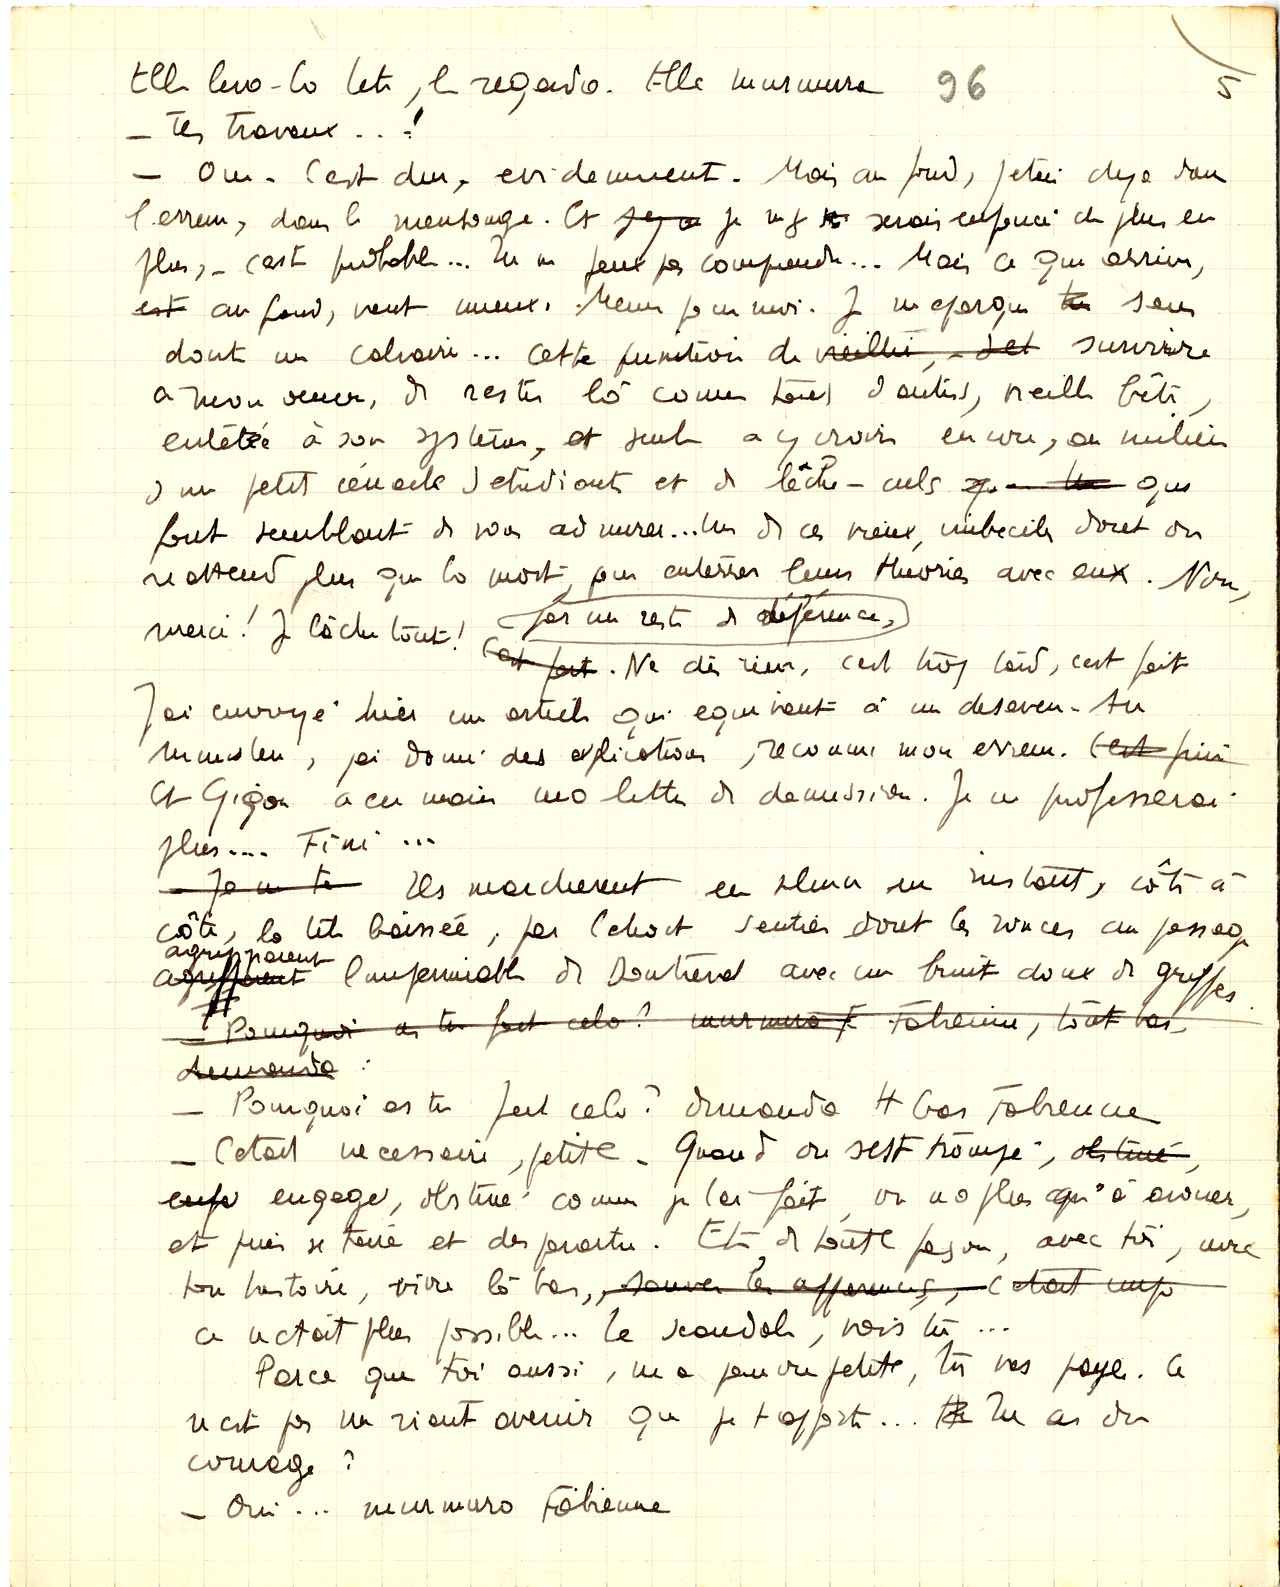 Elle leva la tête, le regarda. Elle murmura 96 5
– Tes travaux...!
– Oui. C'est dur, evidemment. Mais au fond, j'etais deja dans
l'erreur, dans le mensonge. Et je m'y serais enfoncé de plus en
plus, – c'est probable... Tu ne peux pas comprendre... Mais ce qui arrive,
est au fond, vaut mieux. Meme pour moi. Je m'epargne sans
doute un calvaire... Cette punition de vieillir, – d'et survivre
a mon oeuvre, de rester là comme tant d'autres, vieille bête,
entêtée à son système, et seule a y croire encore, au milieu
d'un petit cénacle d'etudiants et de lèche-culs qui
font semblant de vous admirer... Un de ces vieux imbeciles dont on
n'attend plus que la mort, pour enterrer leurs theories avec eux. Non,
merci! Je lâche tout! par un reste de déférence,
C'est fait. Ne dis rien, c'est trop tard, c'est fait
J'ai envoyé hier un article qui equivaut à un desaveu. Au
ministere, j'ai donné des explications, reconnu mon erreur. C'est fini
Et Gigon a en main ma lettre de demission. Je ne professerai
plus.... Fini...
– Je ne te Ils marcherent en silence un instant, côte à
côte, la tête baissée, par l'etroit sentier dont les ronces au passage
agrippaient
l'impermeable de Doutreval avec un bruit doux de griffes.
– Pourquoi as tu fait cela? murmura F Fabienne, tout bas.
demanda :
– Pourquoi as tu fait cela? demanda tt bas Fabienne
– C'etait necessaire, petite. Quand on s'est trompé, obstiné,
engagé, obstiné comme je l'ai fait, on n'a plus qu'à avouer,
et puis se taire et disparaitre. Et, de toute façon, avec toi, avec
ton histoire, vivre là bas, sauver les apparences, c'etait imp
ce n'etait plus possible... Le scandale, vois tu...
Parce que toi aussi, ma pauvre petite, tu vas payer. Ce
n'est pas un riant avenir que je t'apporte... Tu as du
courage?
– Oui... murmura Fabienne